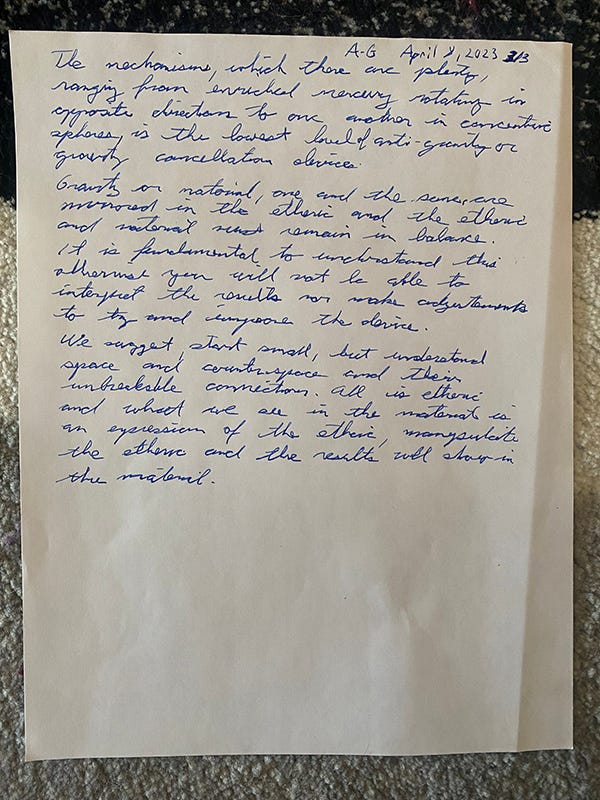 A-G April 8, 2023 3/3
The mechanisms, which there are plenty,
ranging from enriched mercury rotating in
opposite direction to one another in concentric
spheres, is the lowest level of anti-gravity or
gravity cancellation devices.
Gravity or material, one and the same, are
mirrored in the etheric and the etheric
and material must remain in balance.
It is fundamental to understand this
otherwise you will not be able to
interpret the results nor make adjustments
to try and improve the device.
We suggest, start small, but understand
space and counterspace and their
unbreakable connections. All is etheric
and what we see in the material is
an expression of the etheric, manipulate
the etheric and the results will show in
the material.